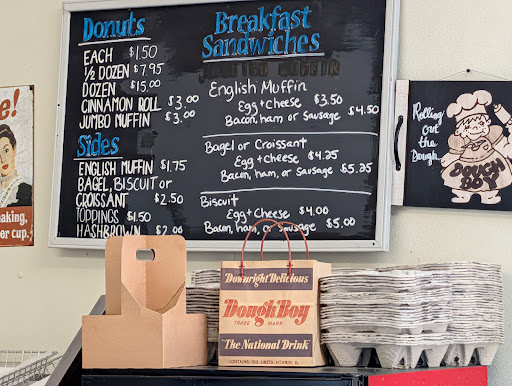 Donuts
EACH $1.50
½ DOZEN $7.95
DOZEN $15.00
CINNAMON ROLL $3.00
JUMBO MUFFIN $3.00
Sides
ENGLISH MUFFIN $1.75
BAGEL, BISCUIT or
CROISSANT $2.50
TOPPINGS $1.50
HASHBROWN $2.00
Breakfast
Sandwiches
English Muffin
Egg + cheese $3.50
Bacon, ham, or Sausage $4.50
Bagel or Croissant
Egg + cheese $4.25
Bacon, ham, or Sausage $5.25
Biscuit
Egg + Cheese $4.00
Bacon, ham, or Sausage $5.00
Rolling
out
the
Dough
DOUGH
BOY
e!
aking,
er cup.
Downright Delicious
Dough Boy
TRADE MARK
"The National Drink"
CONTAINS 100 UNITS VITAMIN B1